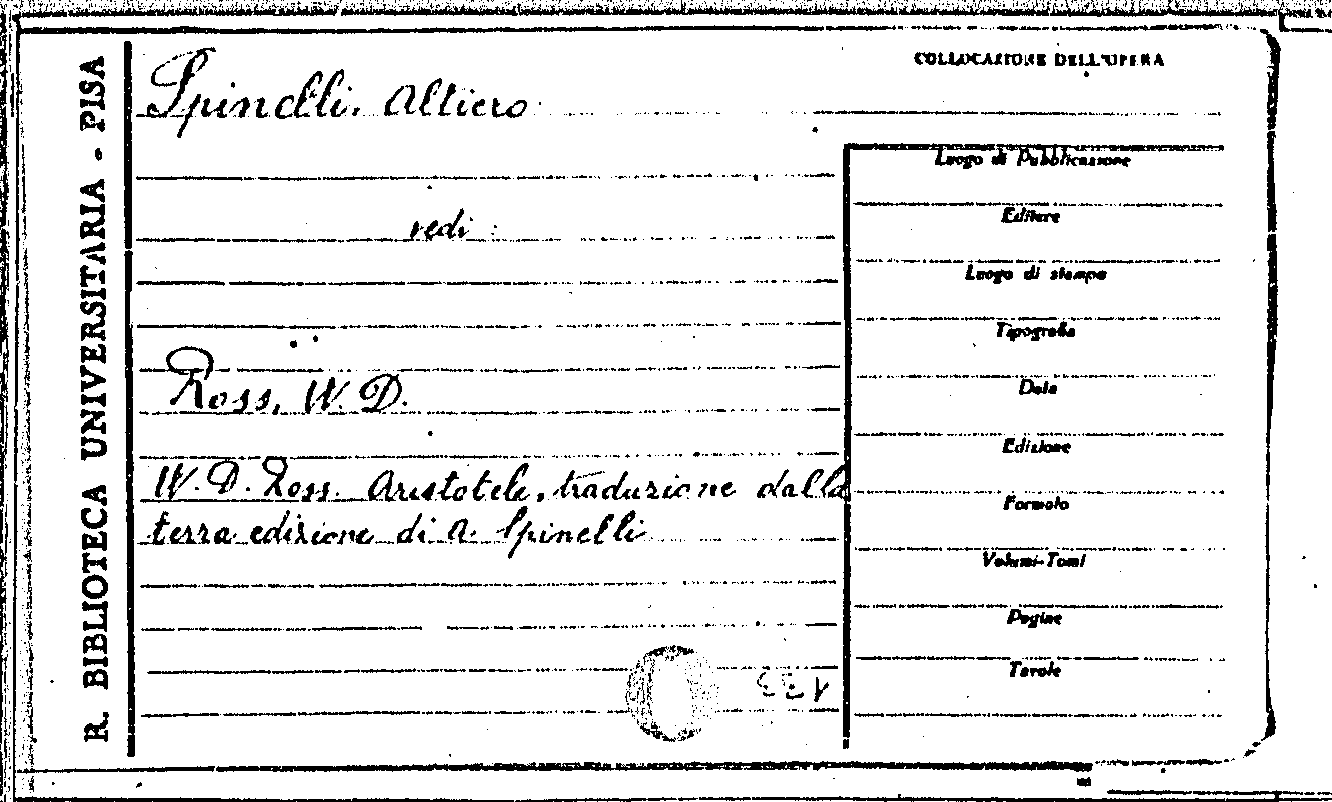 R. BIBLIOTECA UNIVERSITARIA - PISA
Spinelli, Altiero
COLLOCAZIONE DELL'OPERA
vedi:
Ross, W. D.
W. D. Ross. Aristotele, traduzione dalla
terza edizione di A. Spinelli
Luogo di Pubblicazione
Editore
Luogo di stampa
Tipografia
Data
Edizione
Formato
Volumi-Tomi
Pagine
Tavole